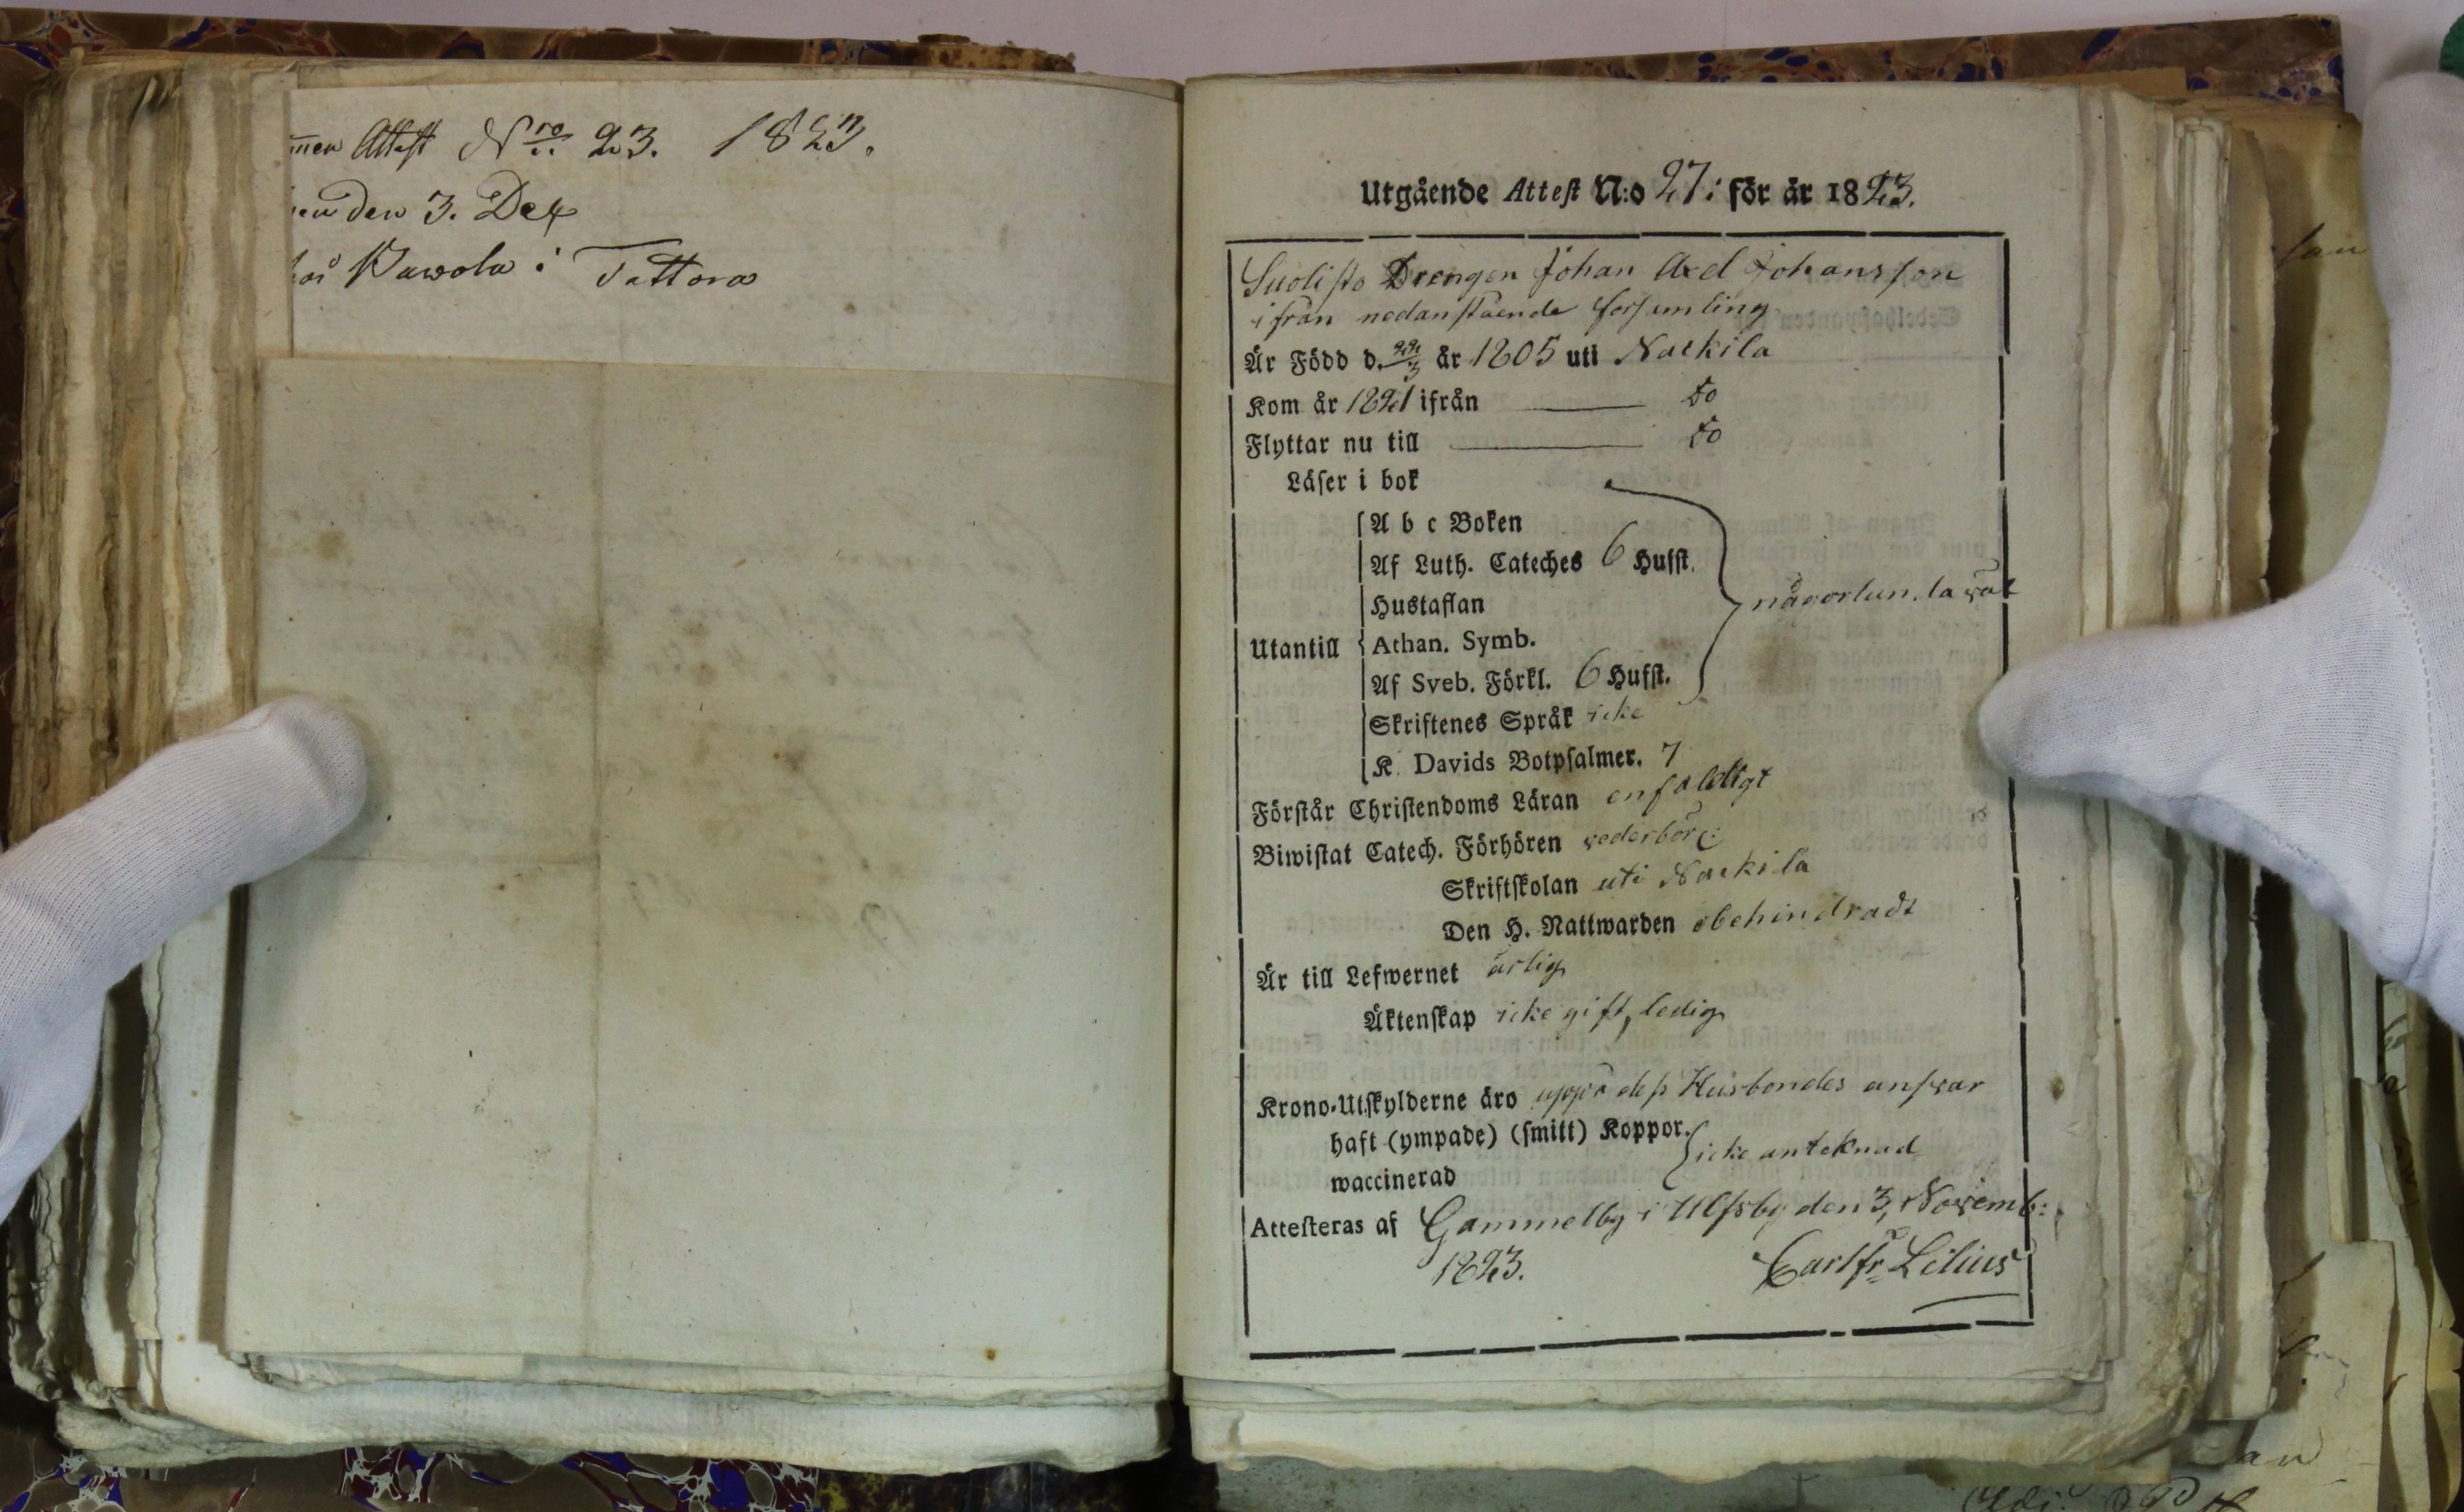 Attest Nro 23. 1823.
den 3. Dec
Wawola i Tattara
Utgående Attest N:o 27: för år 1823.
Suolisto Drengen Johan Axel Johansson
ifrån nedanstående församling
Är Född d. 22/3 år 1805 uti Nackila
Kom år 1821 ifrån do
Flyttar nu till do
Läser i bok
A b c Boken
Af Luth. Cateches 6 Husst.
Hustaflan
någorlunda wäl
Utantill Athan. Symb.
Af Sveb. Förkl. 6 Husst.
Skriftenes Språk icke
K. Davids Botpsalmer. 7
Förstår Christendoms Läran enfaldigt
Biwistat Catech. Förhören vederbörl:
Skriftskolan uti Nackila
Den H. Nattwarden obehindradt
Är till Lefwernet ärlig
Äktenskap icke gift, ledig
Krono-Utskylderne äro uppå dess Husbondes answar
haft (ympade) (smitt) Koppor.
icke anteknad
waccinerad
Attesteras af Gammelby i Ulfsby den 3, Novemb:
1823. Carl Fr. Lilius